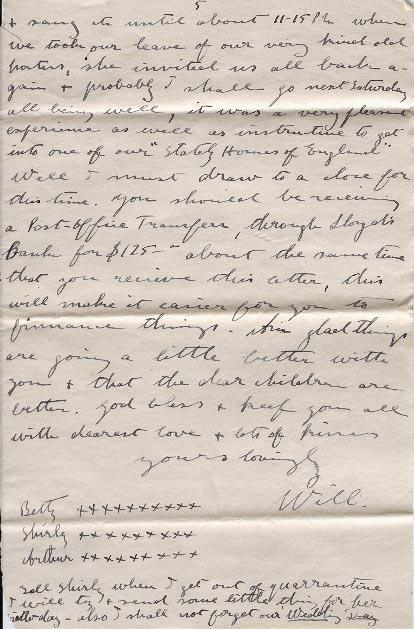 5
+ sang etc until about 11-15 P.M. when
we took our leave of our very kind old
hosters, she invited us all back a-
gain + probably I shall go next Saturday
all being well, it was a very pleasant
experience as well as instructive to get
into one of our "Stately Homes of England"
Well I must draw to a close for
this time. you should be receiving
a Post-Office Transfer, through Lloyds
Bank for $125-- about the same time
that you recieve this letter, this
will make it easier for you to
finnance things. Am glad things
are going a little better with
you + that the dear children are
better. God bless + keep you all
with dearest love + lots of kisses
yours lovingly
Will.
Betty ××××××××××
Shirly ×××××××××
Arthur ×××××××××
Tell Shirly when I get out of quarrantine
I will try + send some little thing for her
birthday - also I shall not forget our Wedding day